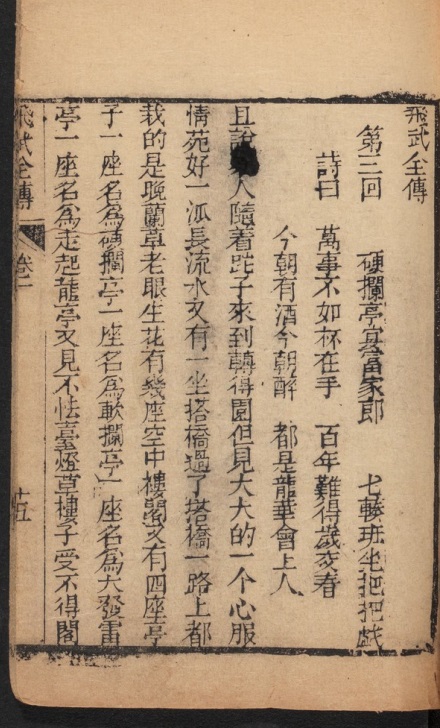 飛武全傳
第三回 硬攔亭宴富家郎 七轅班坐把把戲
詩曰 萬事不如杯在手 百年難得歲交春
今朝有酒今朝醉 都是龍華會上人
且說 人隨着跎子來到轉得園但見大大的一个心服
情苑好一派長流水又有一坐塔橋過了塔橋一路上都
栽的是晚蘭草老眼生花有幾座空中樓閣又有四座亭
子一座名為硬攔亭一座名為軟攔亭一座名為大發雷
亭一座名為走起龍亭又見不怯臺燈草樓子受不得閣
飛武全傳 卷一 十五